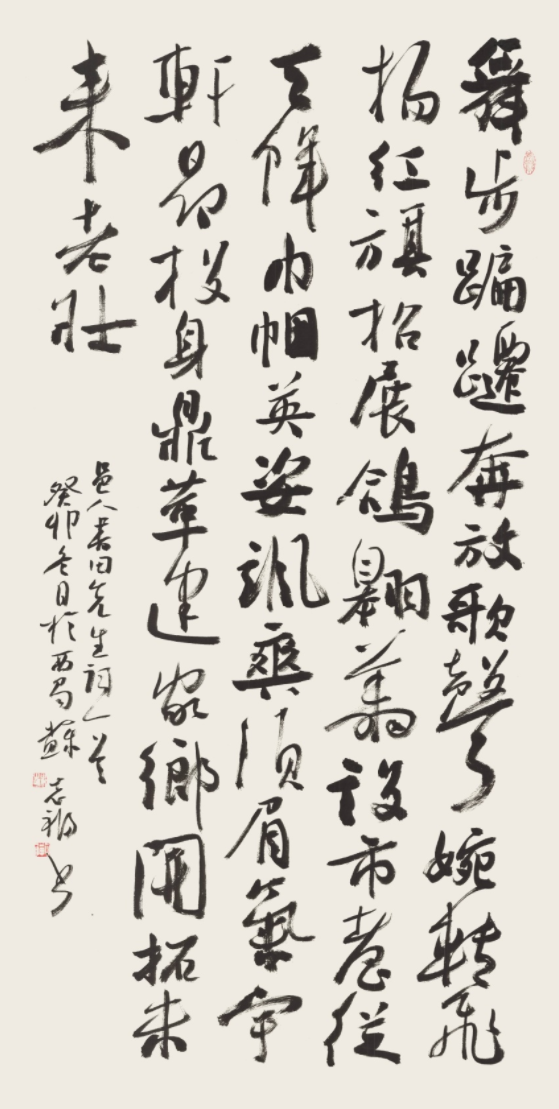 舞步蹁躚奔放歌聲婉轉飛
揚紅旗招展鴿翱翔設市喜從
天降巾幗英姿颯爽須眉氣宇
軒昂投身鼎革建家鄉開拓未
来老壯
邑人田先生詞一首
癸卯冬日於西蜀蘇志福书